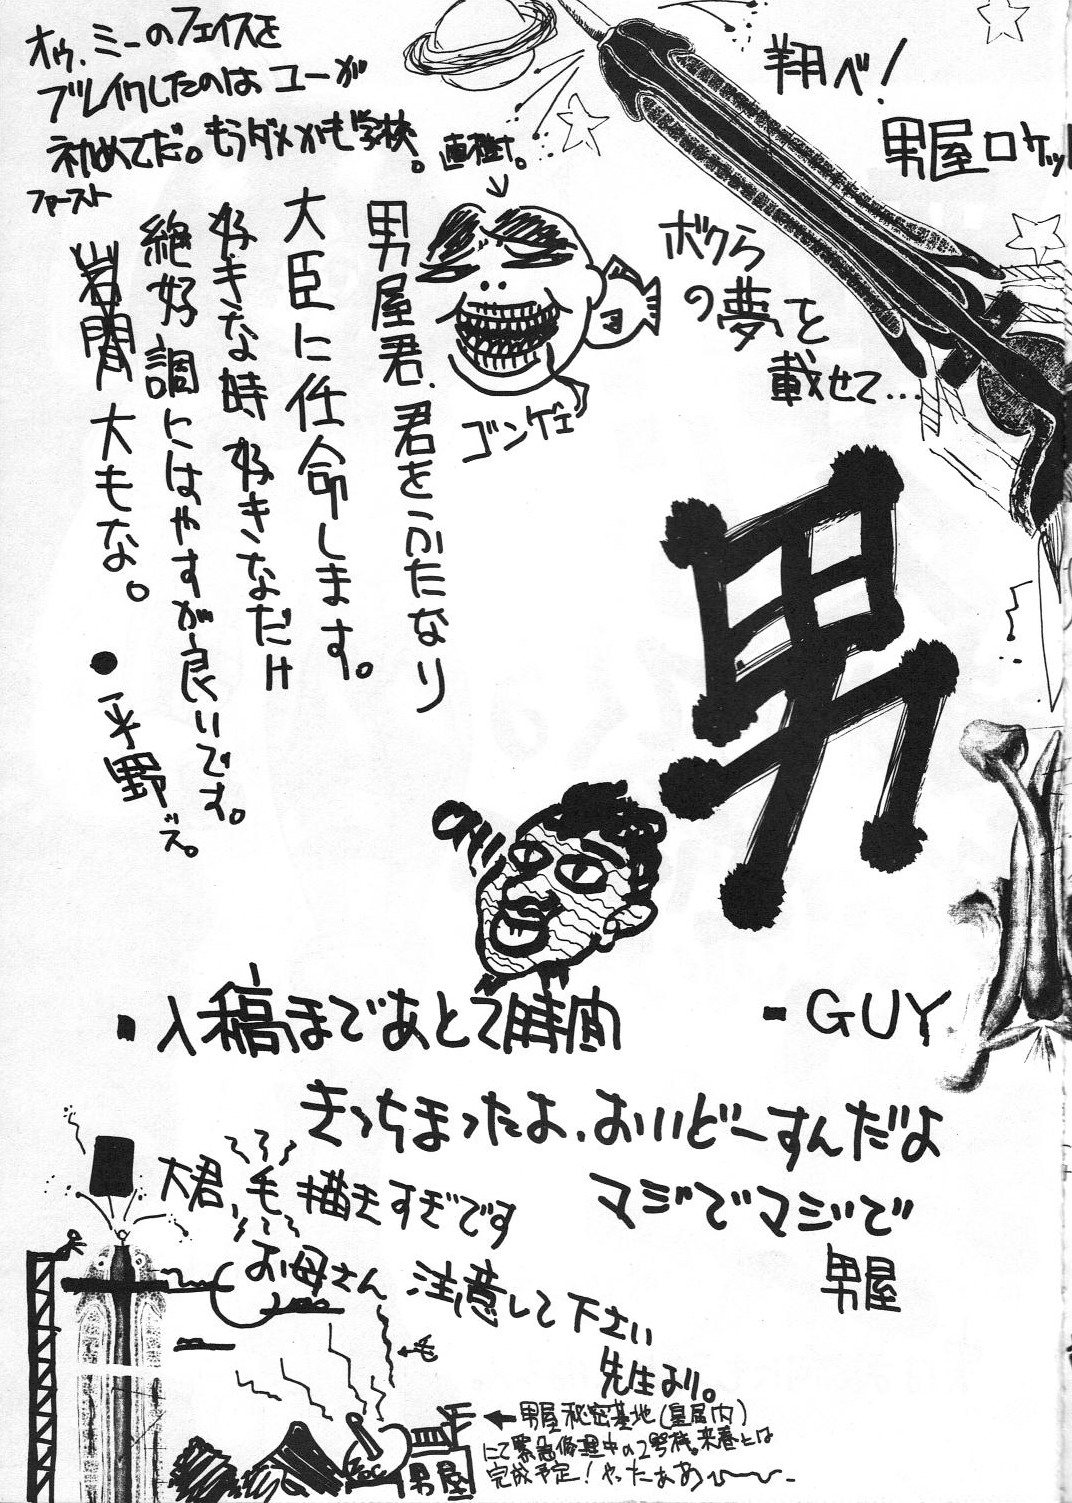 オゥ、ミーのフェイスを
ブレイクしたのはユーが
初めてだ。もうダメかも学校。
ファースト
直樹。
ゴンゲェ
翔べ!
男屋ロケッ
ボクら
の夢を
載せて…
男屋君、君をふたなり
大臣に任命します。
好きな時好きなだけ
絶好調にはやすが良いです。
岩間大もな。
●平野ズ。
男
GUY
入稿まであと2時間
きっちまったよ、おいどーすんだよ
マジでマジで
男屋
大君、毛描きすぎです
お母さん注意して下さい
先生より。
←毛
←男屋秘密基地(皇居内)
にて緊急修理中の2号機。来春とは
完成予定!やったぁあ〜〜
男屋